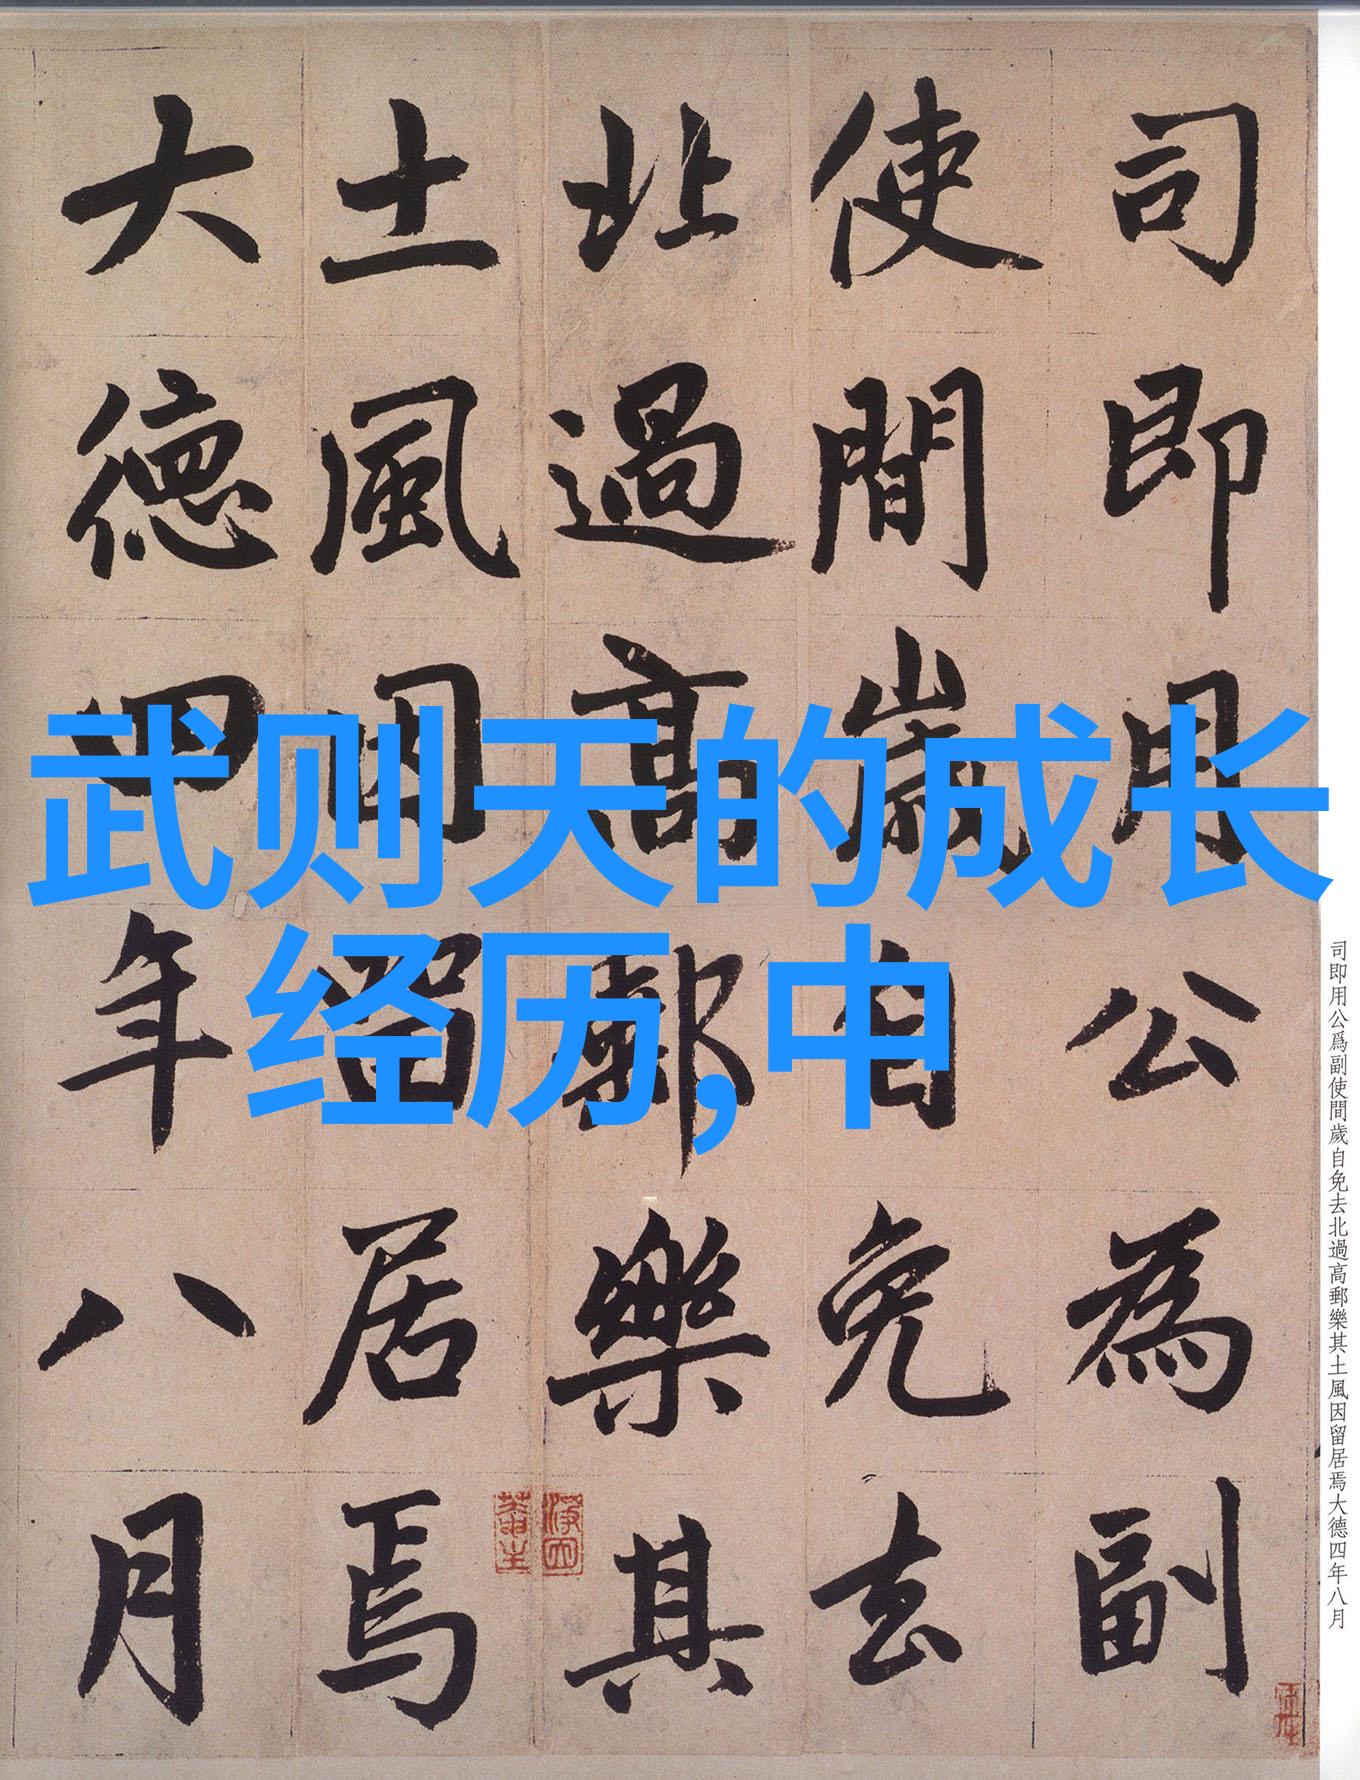 司即用公為副
使間歲自免去
北過高郵樂其
土風因留居焉
大德四年八月
武则天的成长
经历,中
司即用公爲副使間歲自免去北過高郵樂其土風因留居焉大德四年八月